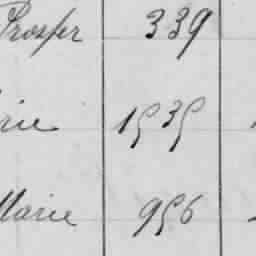 Prosper 339
rie 1535
Marie 956